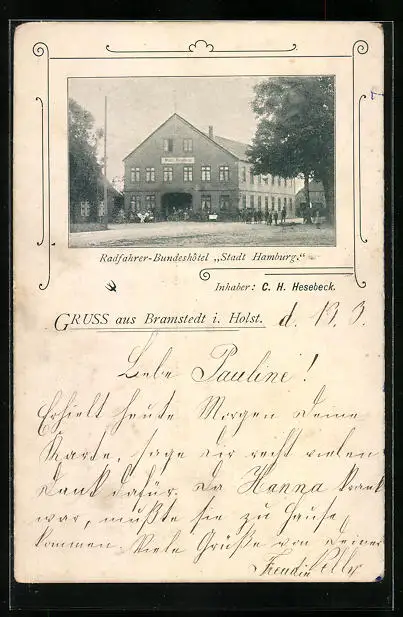 Stadt Hamburg
Radfahrer-Bundeshôtel „Stadt Hamburg.“
Inhaber: C. H. Hesebeck.
GRUSS aus Bramstedt i. Holst. d. 13. 3.
Liebe Pauline!
Erhielt heute Morgen deine
Karte, sage dir recht vielen
Dank dafür. Da Hanna krank
war, mußte sie zu Hause
kommen. Viele Grüße von Deiner
Freundin